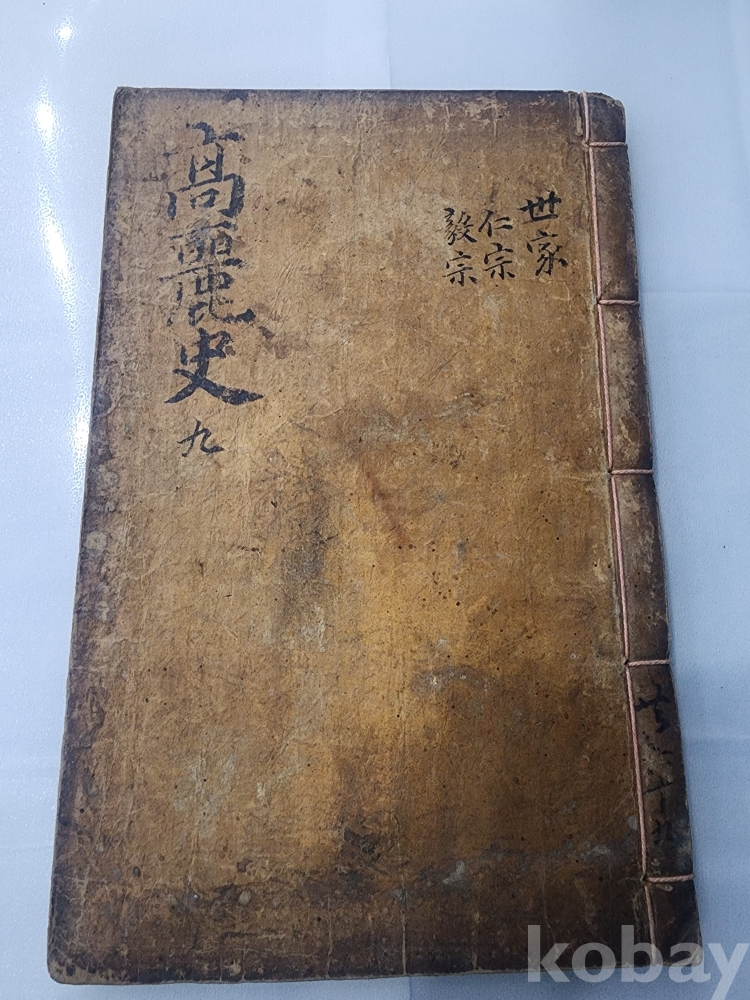 高麗史
九
世家
仁宗
毅宗
kobay